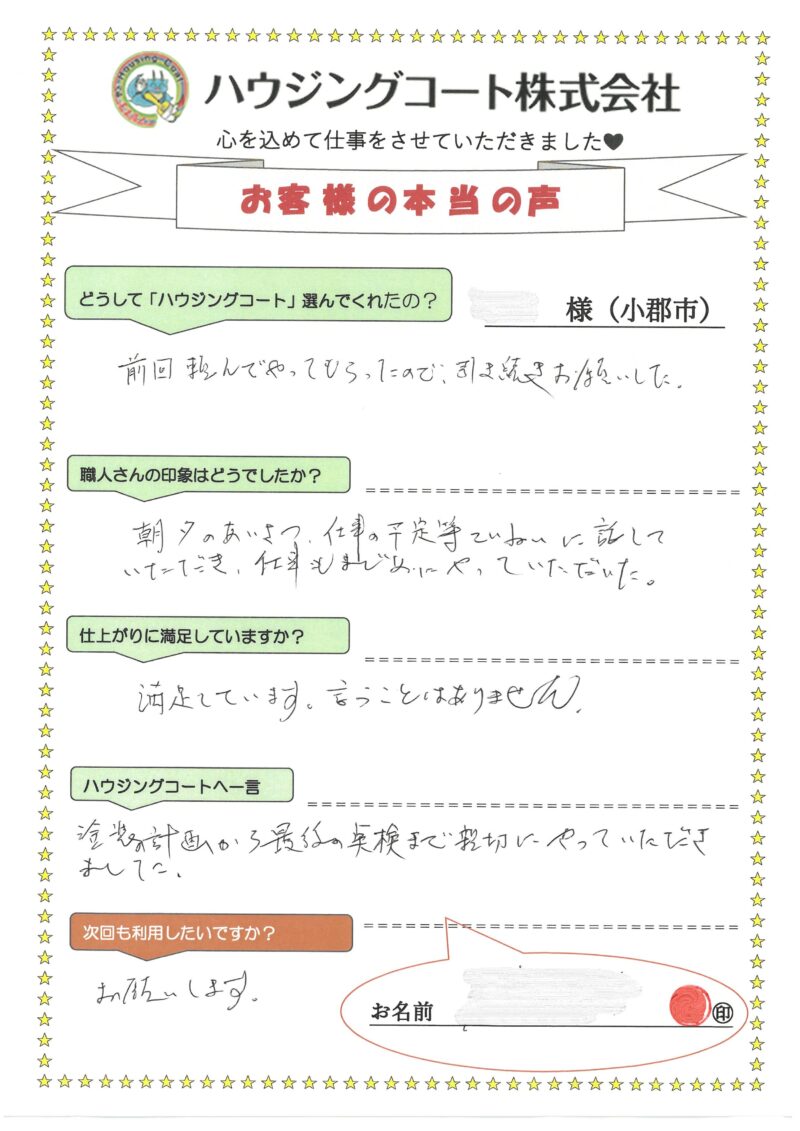 ハウジングコート株式会社
心を込めて仕事をさせていただきました♥
お客様の本当の声
どうして「ハウジングコート」選んでくれたの？
様（小郡市）
前回頼んでやってもらったので、引き続きお願いした。
職人さんの印象はどうでしたか？
朝夕のあいさつ、仕事の予定等ていねいに話して
いただき、仕事もまじめにやっていただいた。
仕上がりに満足していますか？
満足しています。言うことはありません。
ハウジングコートへ一言
塗装の計画から最後の点検まで親切にやっていただき
ました。
次回も利用したいですか？
お願いします。
お名前
印